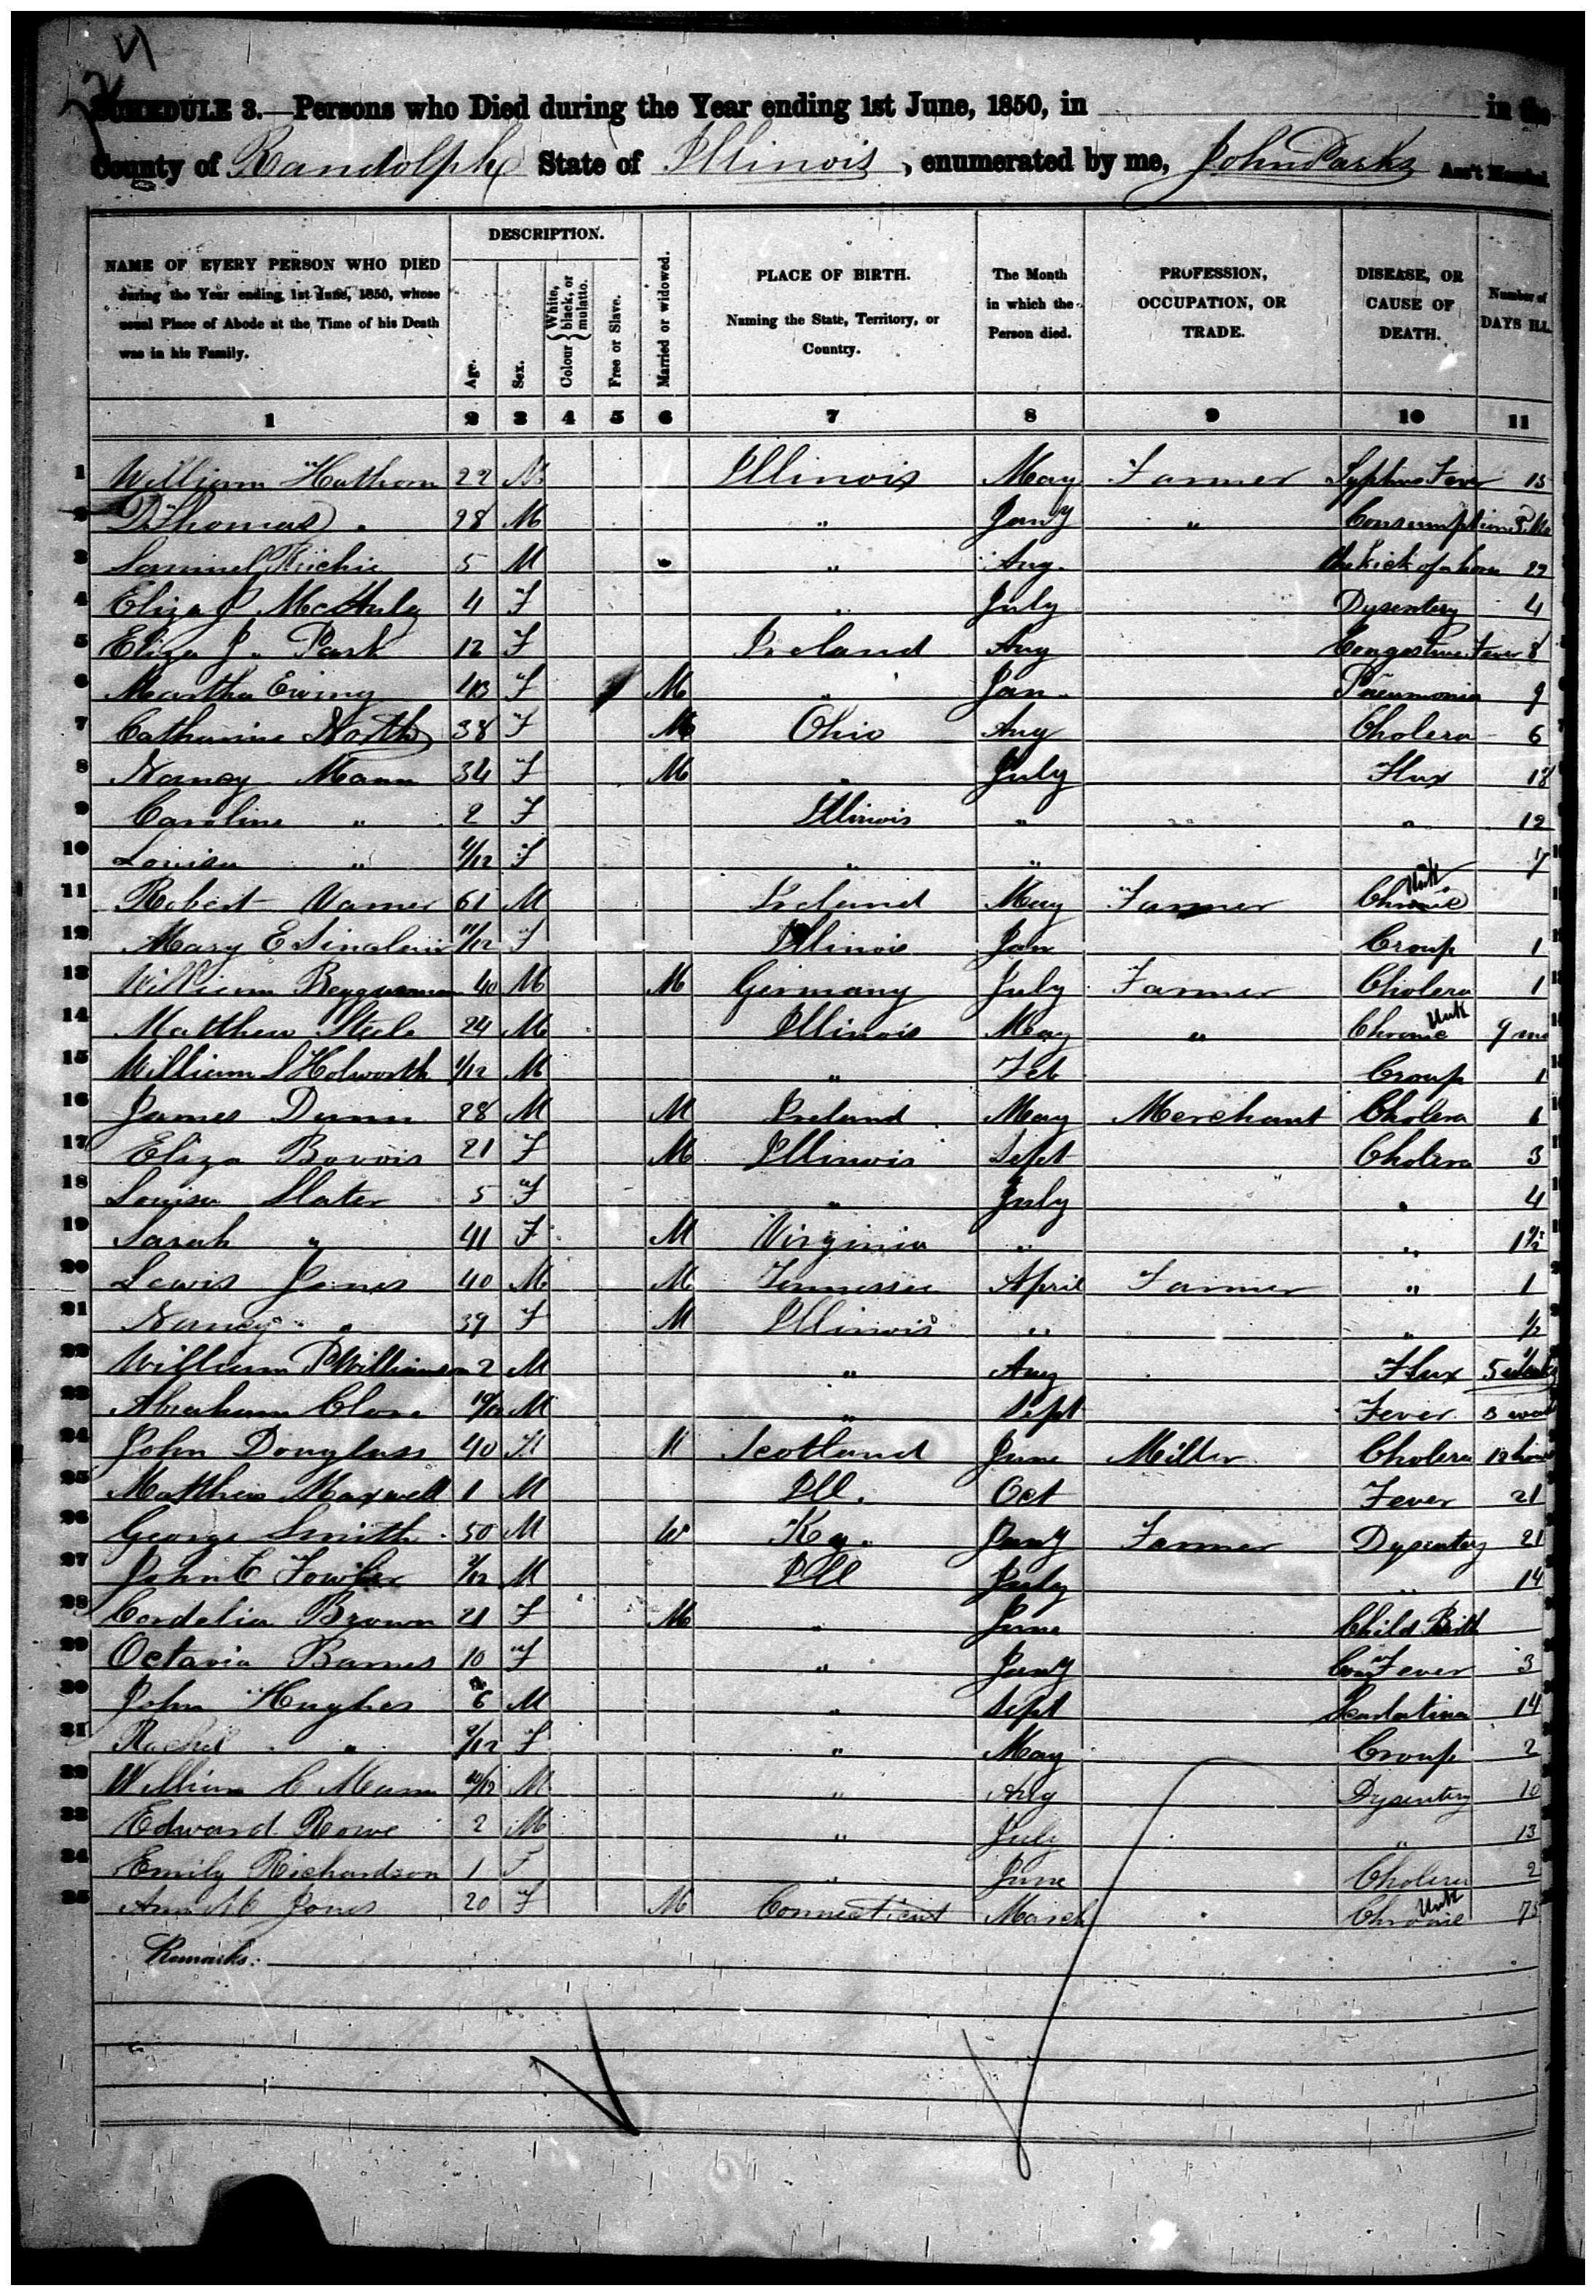 SCHEDULE 3.—Persons who Died during the Year ending 1st June, 1850, in in the
County of Randolph State of Illinois, enumerated by me, John Parks Ass't Marshal.
DESCRIPTION.
NAME OF EVERY PERSON WHO DIED during the Year ending 1st June, 1850, whose usual Place of Abode at the Time of his Death was in his Family. Age. Sex. Colour { White, black, or mulatto. Free or Slave. Married or widowed. PLACE OF BIRTH. Naming the State, Territory, or Country. The Month in which the Person died. PROFESSION, OCCUPATION, OR TRADE. DISEASE, OR CAUSE OF DEATH. Number of DAYS ILL.
1 2 3 4 5 6 7 8 9 10 11
1 William Hathorn 22 M Illinois May Farmer Typhus Fever 15
2 D Thomas 28 M " Jany " Consumption
3 Samuel Ritchie 5 M " Aug. kick of a horse 22
4 Eliza J McAnly 4 F " July Dysentery 4
5 Eliza J. Park 12 F Ireland Aug Congestive Fever 8
6 Martha Ewing 43 F M " Jan. Pneumonia 9
7 Catharine North 38 F M Ohio Aug Cholera 6
8 Nancy Mann 34 F M " July Flux 18
9 Caroline " 2 F Illinois " " 12
10 Louisa " /12 F " " 7
11 Robert Varner 61 M Ireland May Farmer Chronic Unk
12 Mary E Sinclair 11/12 F Illinois Jan Croup 1
13 William 40 M M Germany July Farmer Cholera 1
14 Matthew Steele 24 M Illinois May " Chronic Unk 9 mo
15 William S Holworth 1/12 M " Feb Croup 1
16 James Dunn 28 M M Ireland May Merchant Cholera 6
17 Eliza Bovois 21 F M Illinois Sept Cholera 3
18 Louisa Slater 5 F " July " 4
19 Sarah " 41 F M Virginia " " 1 1/2
20 Lewis Jones 40 M M Tennessee April Farmer " 1
21 Nancy " 39 F M Illinois " " 1/2
22 William P Williamson 2 M " Aug Flux 5
23 Abraham Clore 10/12 M " Sept Fever 3
24 John Douglass 40 M M Scotland June Miller Cholera 12 hours
25 Matthew Maxwell 1 M Ill. Oct Fever 21
26 George Smith 50 M W Ky. Jany Farmer Dysentery 21
27 John C Fowler /12 M Ill July " 14
28 Cordelia Brown 21 F M " June Child Birth
29 Octavia Barnes 10 F " Jany Con Fever 3
30 John Hughes 6 M " Sept Scarlatina 14
31 Rachel " 9/12 F " May Croup 2
32 William C Mann 10/12 M " Aug Dysentery 10
33 Edward Rowe 2 M " July " 13
34 Emily Richardson 1 F " June Cholera 2
35 Ann M Jones 20 F M Connecticut March Chronic Unk 75
Remarks: